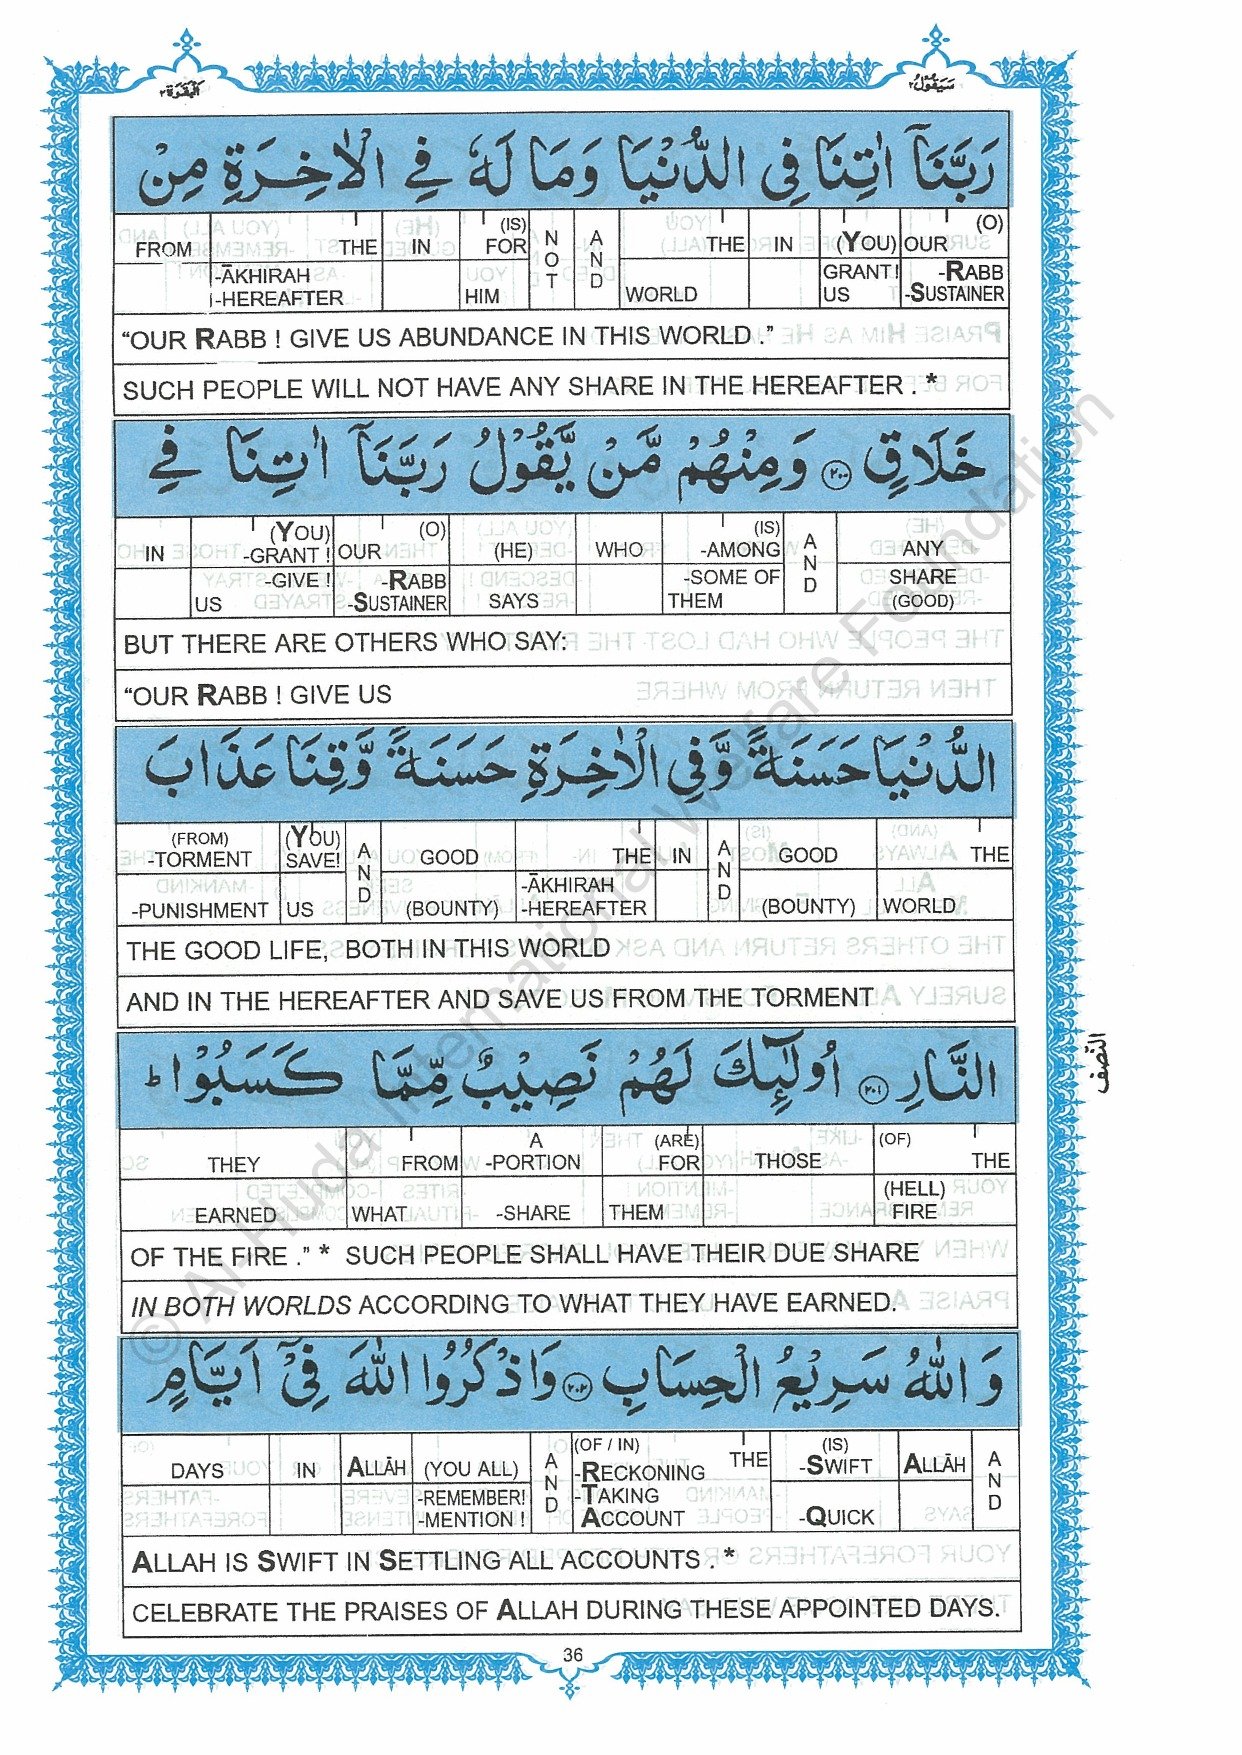 البقرة ٢
سيقول ٢
رَبَّنَآ اٰتِنَا فِى الدُّنْيَا وَمَا لَهٗ فِى الْاٰخِرَةِ مِنْ
FROM THE IN (IS) FOR NOT AND THE IN (YOU) OUR (O)
-ĀKHIRAH GRANT! -RABB
-HEREAFTER HIM WORLD US -SUSTAINER
“OUR RABB ! GIVE US ABUNDANCE IN THIS WORLD .”
SUCH PEOPLE WILL NOT HAVE ANY SHARE IN THE HEREAFTER . *
خَلَاقٍ ﴿٢٠٠﴾ وَمِنْهُمْ مَّنْ يَّقُوْلُ رَبَّنَآ اٰتِنَا فِى
(YOU) (O) (IS)
IN -GRANT ! OUR (HE) WHO -AMONG AND ANY
-GIVE ! -RABB -SOME OF SHARE
US -SUSTAINER SAYS THEM (GOOD)
BUT THERE ARE OTHERS WHO SAY:
“OUR RABB ! GIVE US
الدُّنْيَا حَسَنَةً وَّفِى الْاٰخِرَةِ حَسَنَةً وَّقِنَا عَذَابَ
(FROM) (YOU)
-TORMENT SAVE! AND GOOD THE IN AND GOOD THE
-ĀKHIRAH
-PUNISHMENT US (BOUNTY) -HEREAFTER (BOUNTY) WORLD
THE GOOD LIFE, BOTH IN THIS WORLD
AND IN THE HEREAFTER AND SAVE US FROM THE TORMENT
النَّارِ ﴿٢٠١﴾ اُولٰٓئِكَ لَهُمْ نَصِيْبٌ مِّمَّا كَسَبُوْا ؕ
النصف
A (ARE) (OF)
THEY FROM -PORTION FOR THOSE THE
(HELL)
EARNED WHAT -SHARE THEM FIRE
OF THE FIRE .” * SUCH PEOPLE SHALL HAVE THEIR DUE SHARE
IN BOTH WORLDS ACCORDING TO WHAT THEY HAVE EARNED.
وَاللّٰهُ سَرِيْعُ الْحِسَابِ ﴿٢٠٢﴾ وَاذْكُرُوا اللّٰهَ فِىْٓ اَيَّامٍ
(OF / IN) (IS)
DAYS IN ALLĀH (YOU ALL) AND -RECKONING THE -SWIFT ALLĀH AND
-REMEMBER! -TAKING
-MENTION ! ACCOUNT -QUICK
ALLAH IS SWIFT IN SETTLING ALL ACCOUNTS . *
CELEBRATE THE PRAISES OF ALLAH DURING THESE APPOINTED DAYS.
36
© Al-Huda International Welfare Foundation